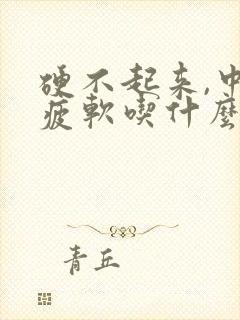 硬不起来,中
疲軟喫什麼
青丘